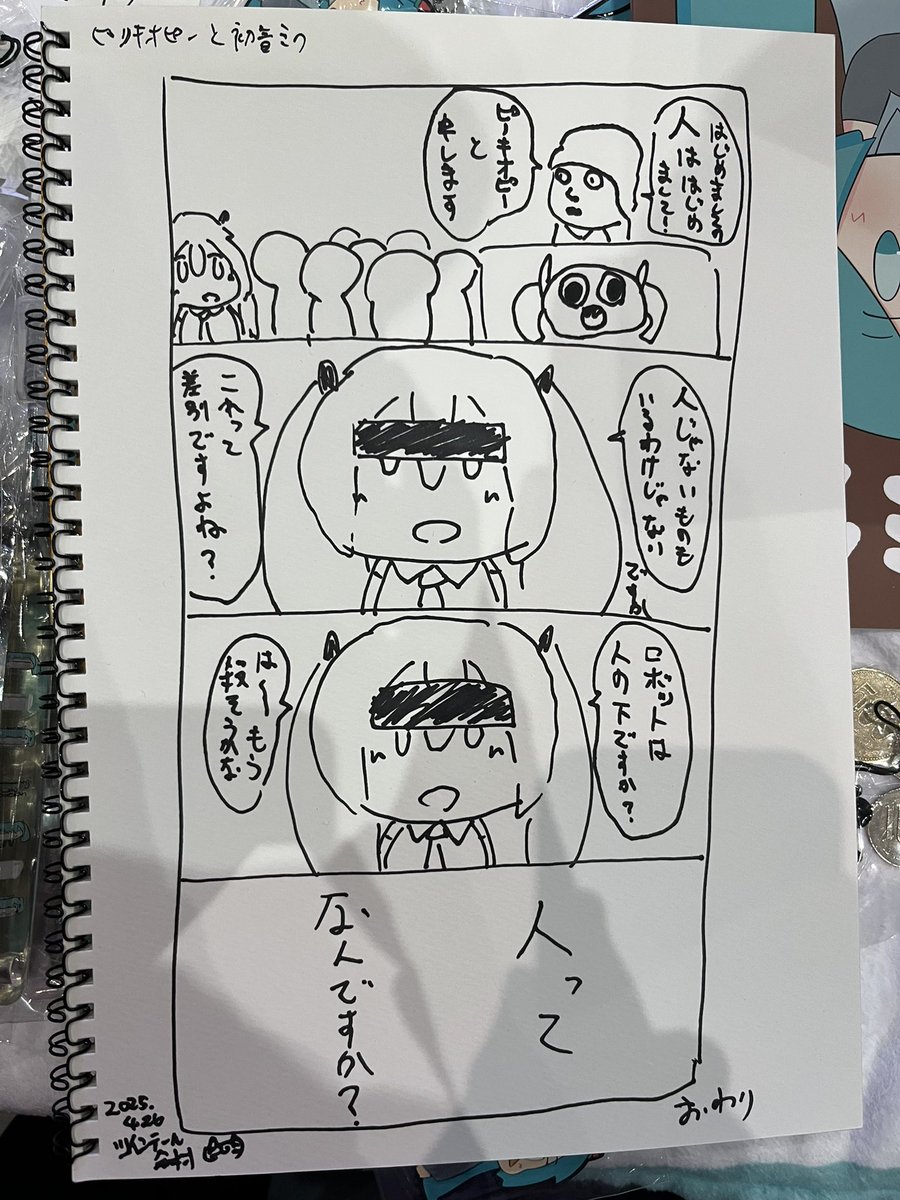 ピノキオピーと初音ミク
はじめましての
人ははじめ
まして！
ピノキオピー
と
申します
人じゃないものも
いるわけじゃない
ですか
これって
差別ですよね？
ロボットは
人の下ですか？
は〜もう
殺そうかな
人って
なんですか？
おわり
2025.
4.26
ツインテール